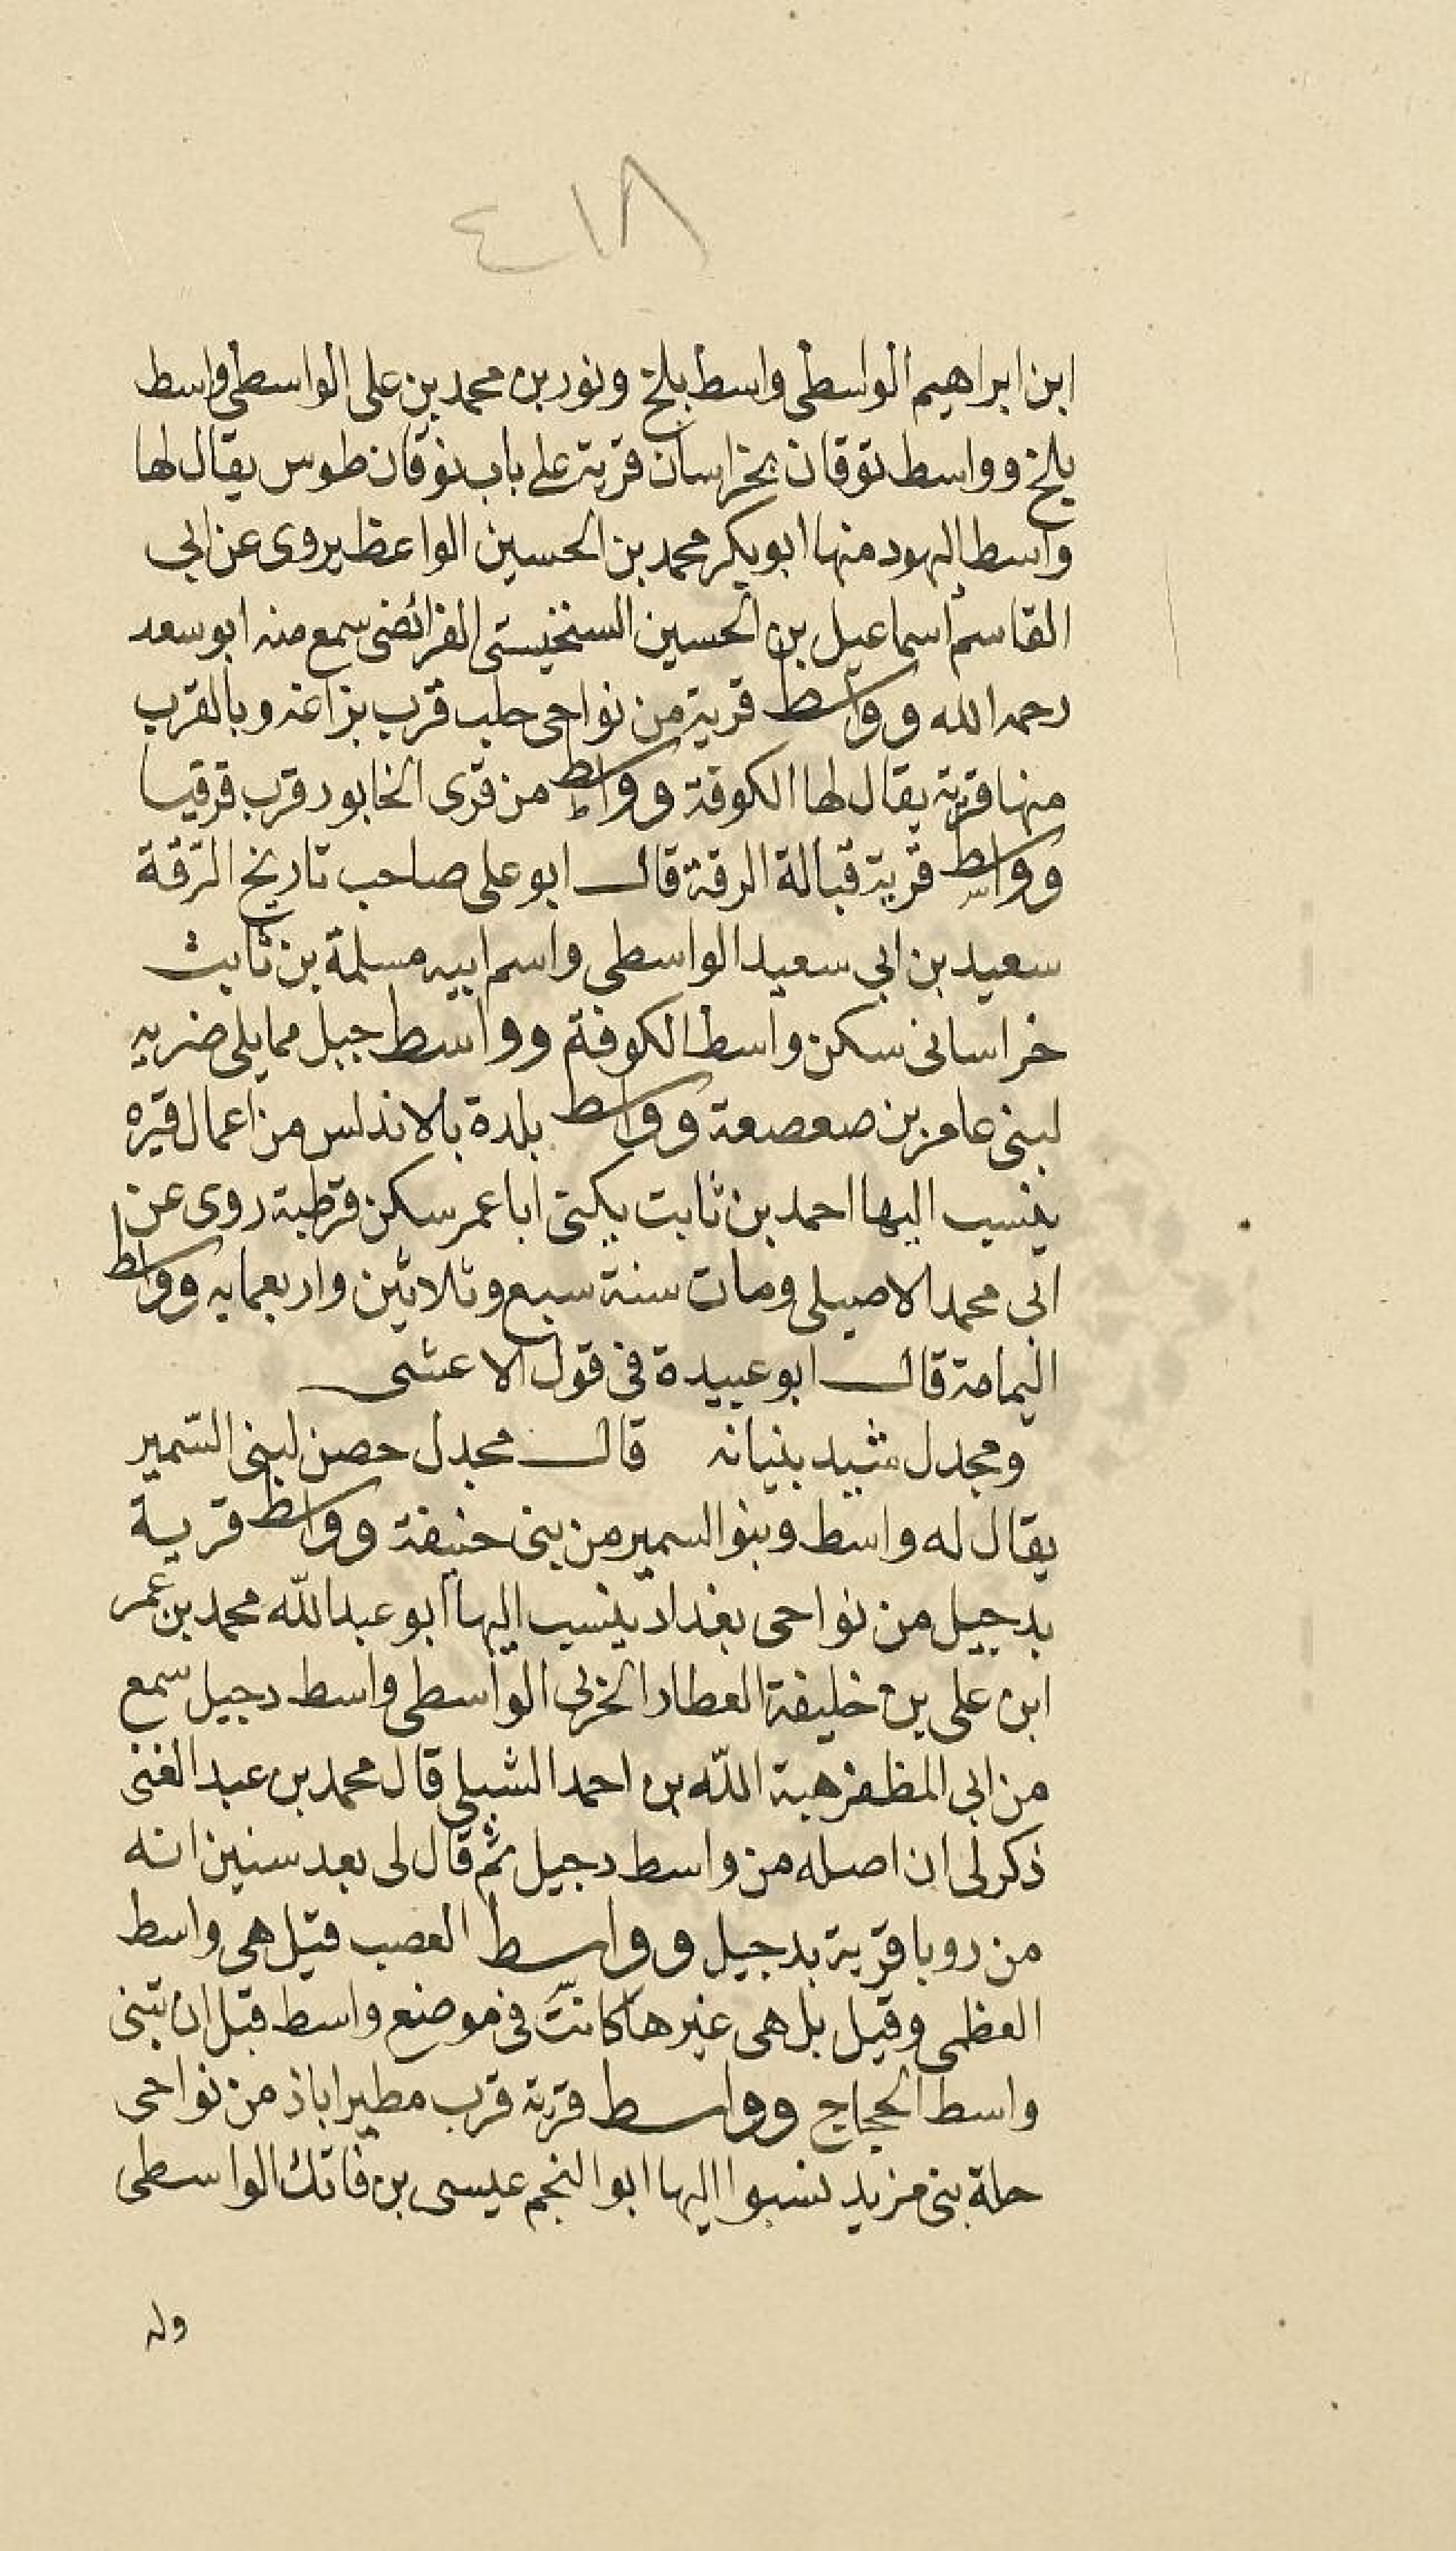 ٤١٨
ابن ابراهيم الواسطى واسط بلخ ونور بن محمد بن على الواسطى واسط
بلخ وواسط نوقان بخراسان قرية على باب نوقان طوس يقال لها
واسط اليهود منها ابو بكر محمد بن الحسين الواعظ يروى عن ابى
القاسم اسماعيل بن الحسين السنخبستى الفرائضى سمع منه ابو سعد
رحمه الله وواسط قرية من نواحى حلب قرب بزاعه وبالقرب
منها قرية يقال لها الكوفة وواسط من قرى الخابور قرب قرقيسا
وواسط قرية قبالة الرقة قال ابو على صاحب تاريخ الرقة
سعيد بن ابى سعيد الواسطى واسم ابيه مسلمة بن ثابت
خراسانى سكن واسط الكوفة وواسط جبل مما يلى ضريه
لبنى عامر بن صعصعة وواسط بلدة بالاندلس من اعمال قبره
ينسب اليها احمد بن ثابت يكنى ابا عمر سكن قرطبة روى عن
ابى محمد الاصيلى ومات سنة سبع وثلاثين واربعمايه وواسط
اليمامة قال ابو عبيدة فى قول الاعشى
ومجدل شيد بنيانه قال مجدل حصن لبنى السمير
يقال له واسط وبنو السمير من بنى حنيفة وواسط قرية
بدجيل من نواحى بغداد ينسب اليها ابو عبد الله محمد بن عمر
ابن على بن خليفة العطار الخربى الواسطى واسط دجيل سمع
من ابى المظفر هبة الله بن احمد الشبلى قال محمد بن عبد الغنى
ذكر لى ان اصله من واسط دجيل ثم قال لى بعد سنين انه
من روبا قرية بدجيل وواسط العصب قيل هى واسط
العظمى وقيل بل هى غيرها كانت فى موضع واسط قبل ان تبنى
واسط الحجاج وواسط قرية قرب مطيراباذ من نواحى
حلة بنى مزيد نسبوا اليها ابو النجم عيسى بن فاتك الواسطى
وله